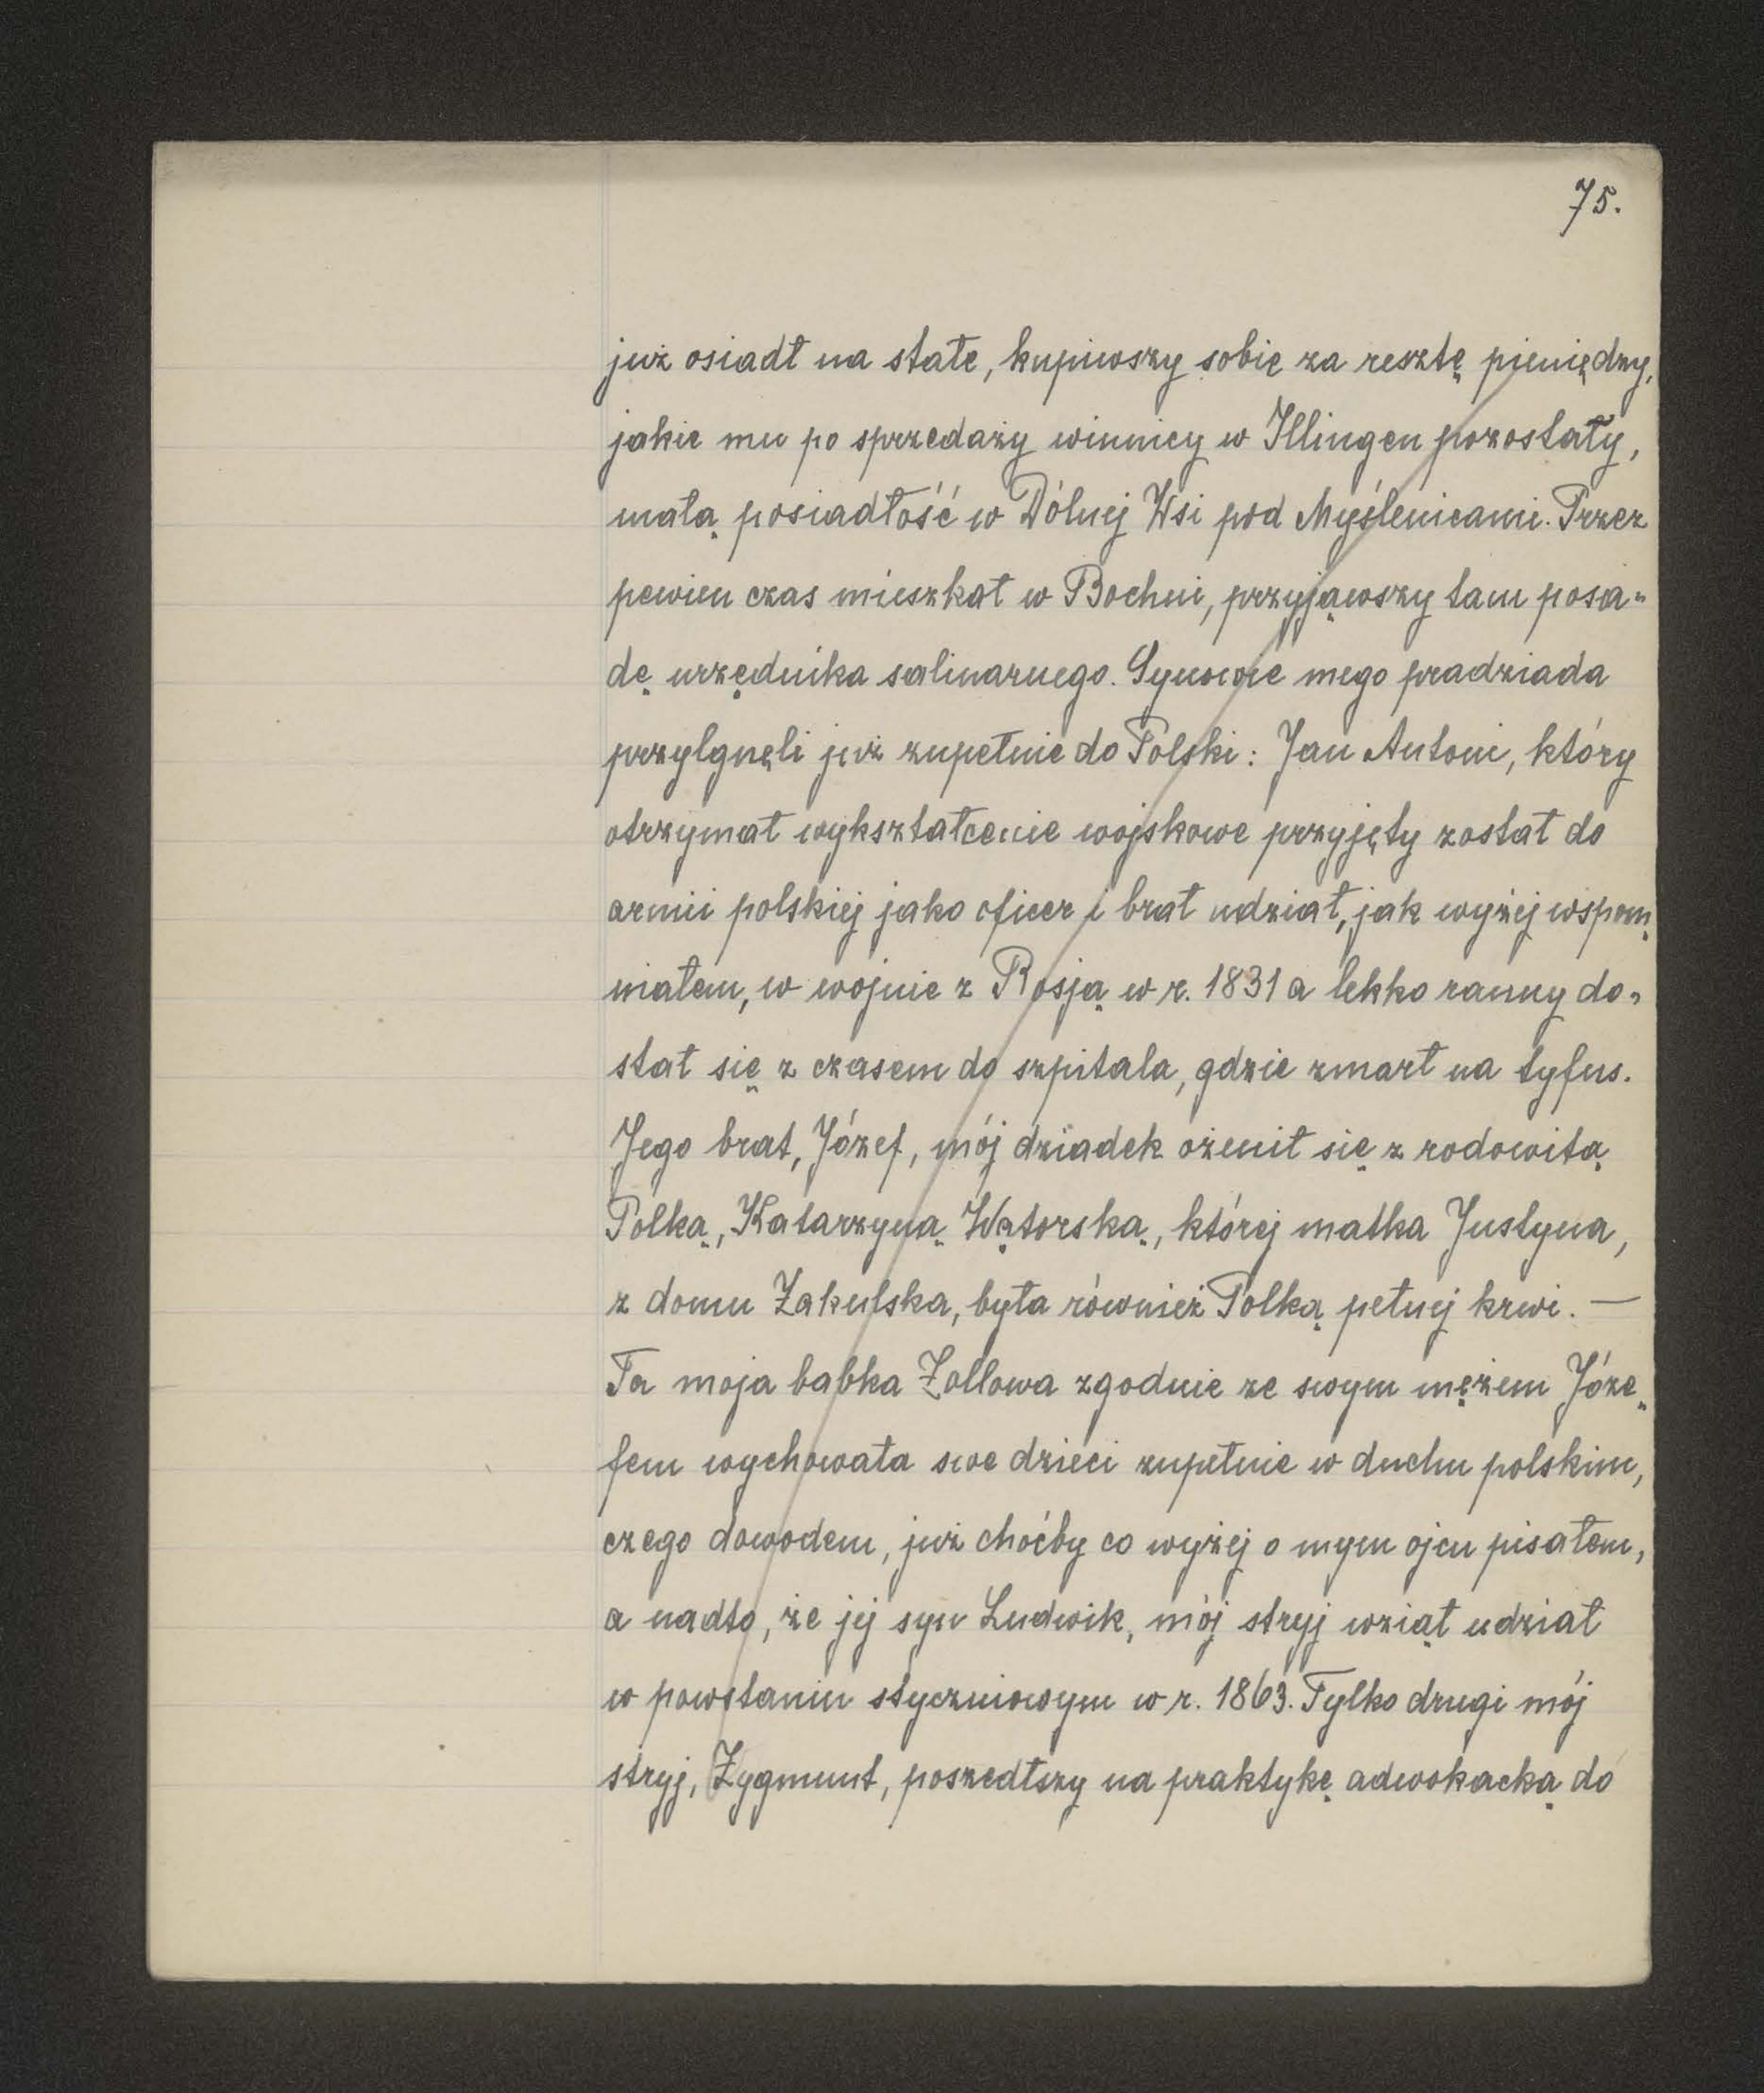 75.
już osiadł na stałe, kupiwszy sobie za resztę pieniędzy,
jakie mu po sprzedaży winnicy w Illingen pozostały,
małą posiadłość w Dólnej Wsi pod Myślenicami. Przez
pewien czas mieszkał w Bochni, przyjąwszy tam posa-
dę urzędnika salinarnego. Synowie mego pradziada
przylgnęli już zupełnie do Polski: Jan Antoni, który
otrzymał wykształcenie wojskowe przyjęty został do
armii polskiej jako oficer i brał udział, jak wyżej wspom-
niałem, w wojnie z Rosją w r. 1831 a lekko ranny do-
stał się z czasem do szpitala, gdzie zmarł na tyfus.
Jego brat, Józef, mój dziadek ożenił się z rodowitą
Polką, Katarzyną Wątorską, której matka Justyna,
z domu Zakulska, była również Polką pełnej krwi. —
Ta moja babka Zollowa zgodnie ze swym mężem Józe-
fem wychowała swe dzieci zupełnie w duchu polskim,
czego dowodem, już choćby co wyżej o mym ojcu pisałem,
a nadto, że jej syn Ludwik, mój stryj wziął udział
w powstaniu styczniowym w r. 1863. Tylko drugi mój
stryj, Zygmunt, poszedłszy na praktykę adwokacką do